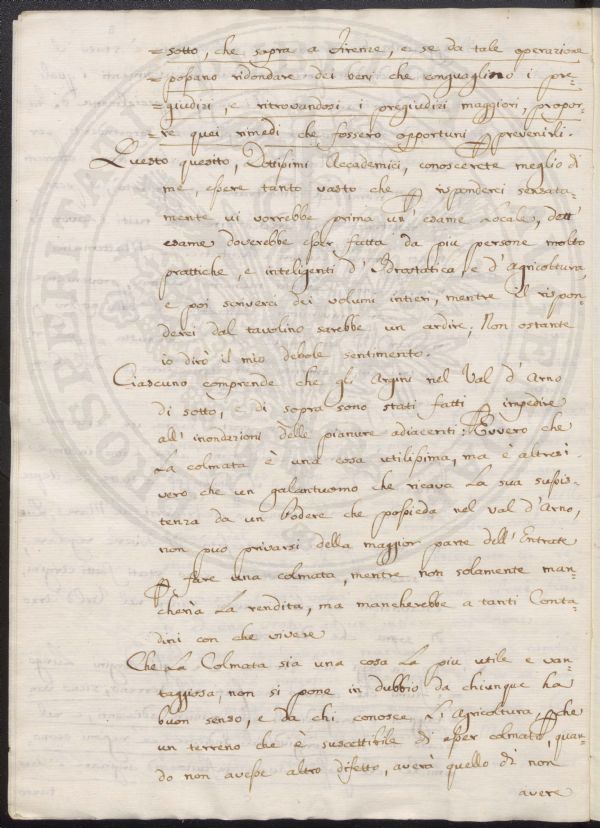 = sotto, che sopra a Firenze, e se da tale operazione
= possano ridondare dei beni che conguaglino i pre-
= giudizi, e ritrovandosi i pregiudizi maggiori, propor-
= re quei rimedi che fossero opportuni p prevenirli.
Questo quesito, Dottissimi Accademici, conoscerete meglio di
me, essere tanto vasto che p risponderci sensata-
mente vi vorrebbe prima un' esame Locale, dett'
esame doverebbe esser fatta da piu persone molto
prattiche, e inteligenti d' Idrostatica, e d' Agricoltura,
e poi scriverci dei volumi intieri, mentre il rispon-
derci dal tavolino sarebbe un ardire; Non ostante
io dirò il mio debole sentimento.
Ciascuno comprende che gli Argini nel Val d' Arno
di sotto, e di sopra sono stati fatti p impedire
all' inondazioni delle pianure adiacenti. Èvvero che
La colmata è una cosa utilissima, ma è altresi
vero che un galantuomo che ricava La sua sussis-
tenza da un Podere che possieda nel val d' Arno,
non puo privarsi della maggior parte dell' Entrate
p fare una colmata, mentre non solamente man-
cherìa La rendita, ma mancherebbe a tanti Conta-
dini con che vivere
Che La Colmata sia una cosa La piu utile e van-
taggiosa, non si pone in dubbio da chiunque ha
buon senso, e da chi conosce L' Agricoltura, pche
un terreno che è suscettibile di esser colmato, quan-
do non avesse altro difetto, averà quello di non
avere
PROSPERITATI